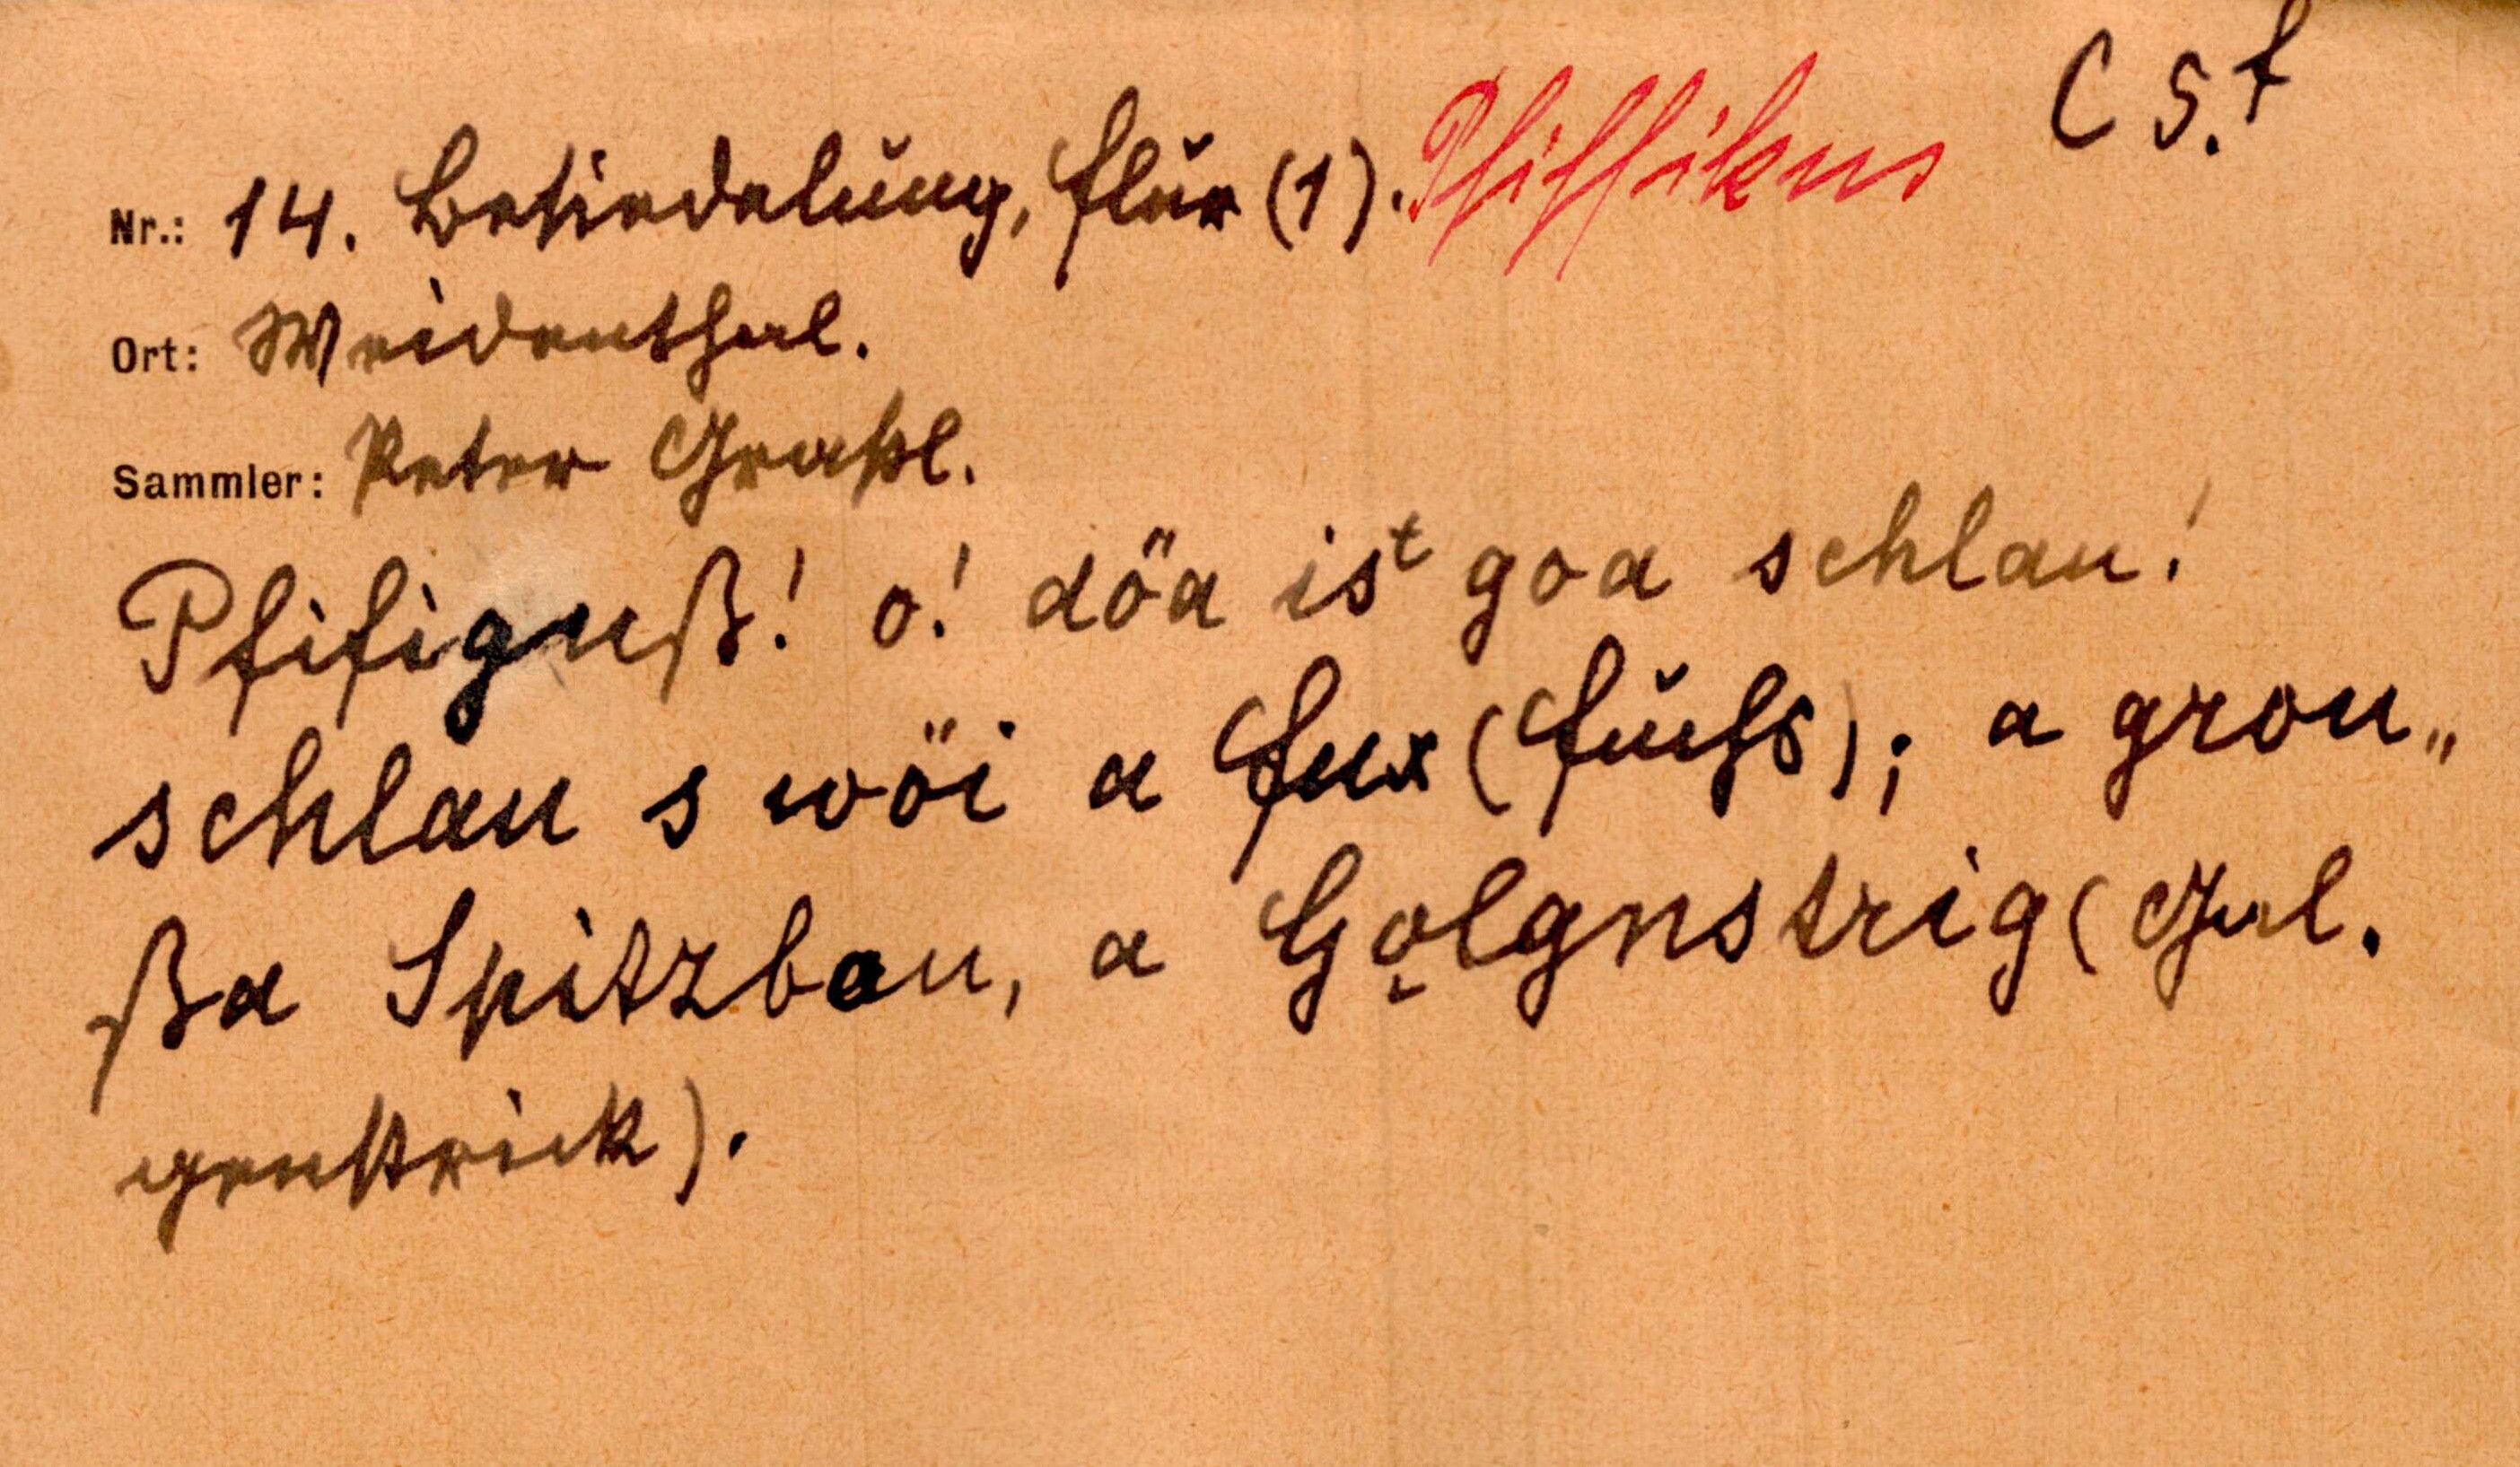 C 5.f
Nr.: 14. Besiedelung, Flur (1). Pfiffikus
Ort: Weidenthal.
Sammler: Peter Graßl.
Pfifiguß! o! döa ist goa schlau!
schlau s wöi a Fux (Fuchs); a grou„
ßa Spitzbau, a Gǫlgnstrig (Gal.
genstrick).